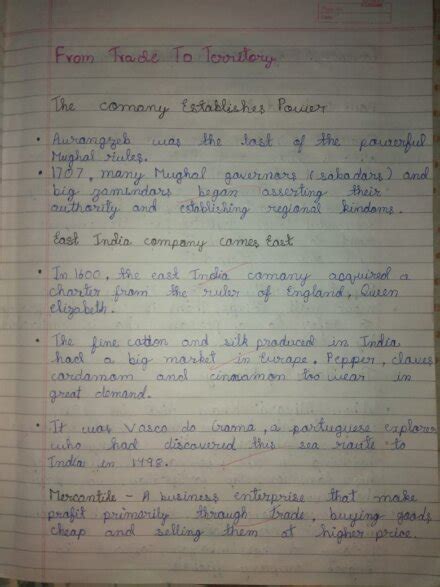 From Trade To Territory
The comany Establishes Power
• Aurangzeb was the last of the powerful
Mughal rules.
• 1707, many Mughal governors (subadars) and
big zamindars began asserting their
authority and establishing regional kindoms.
East India company comes East
• In 1600, the east India comany acquired a
charter from the ruler of England, Queen
elizabeth.
• The fine cotton and silk produced in India
had a big market in Europe. Pepper, cloves
cardamom and cinnamon too wear in
great demand.
• It was Vasco da Gama, a portuguese explorer
who had discovered this sea route to
India in 1498.
Mercantile - A business enterprise that make
profit primarily through trade, buying goods
cheap and selling them at higher price.